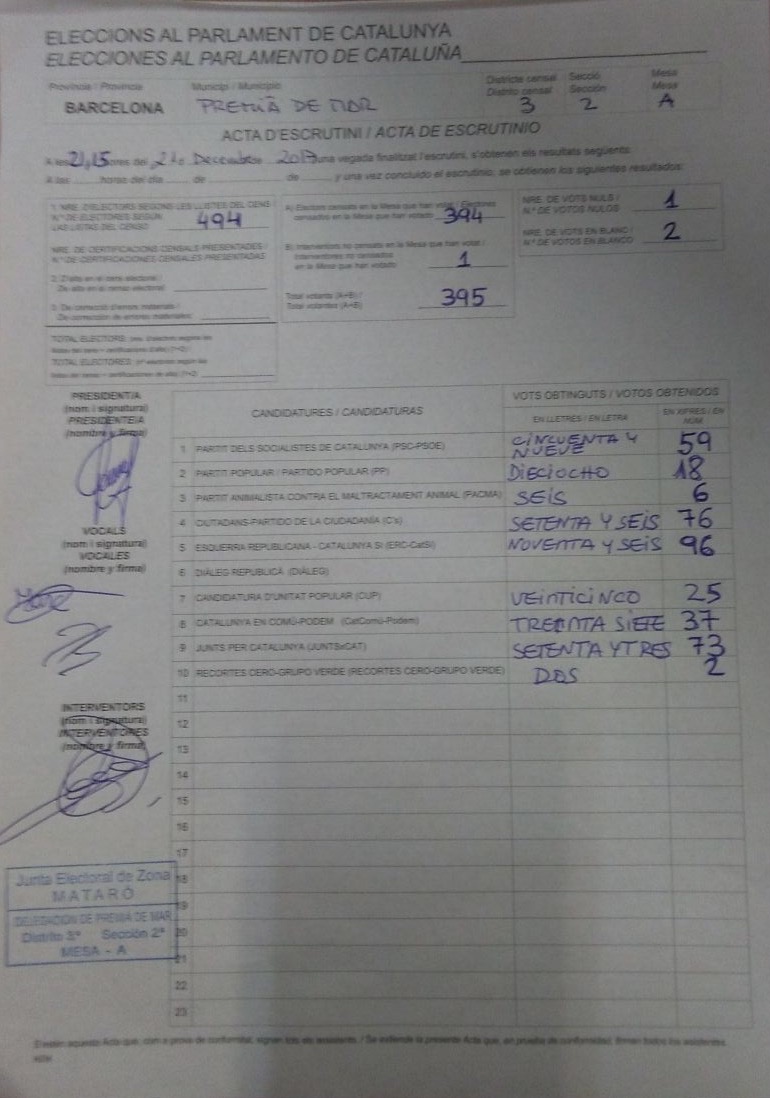 ELECCIONS AL PARLAMENT DE CATALUNYA
ELECCIONES AL PARLAMENTO DE CATALUÑA
Província / Provincia Municipi / Municipio Districte censal Secció Mesa
Distrito censal Sección Mesa
BARCELONA PREMIÀ DE MAR 3 2 A
ACTA D'ESCRUTINI / ACTA DE ESCRUTINIO
A les 21,15 hores del 21 de Decembre de 2017 una vegada finalitzat l'escrutini, s'obtenen els resultats següents:
A las horas del día de de y una vez concluido el escrutinio, se obtienen los siguientes resultados:
1. NRE. D'ELECTORS SEGONS LES LLISTES DEL CENS
N.º DE ELECTORES SEGÚN
LAS LISTAS DEL CENSO 494
NRE. DE CERTIFICACIONS CENSALS PRESENTADES /
N.º DE CERTIFICACIONES CENSALES PRESENTADAS
2. D'alta en el cens electoral
De alta en el censo electoral
3. De correcció d'errors materials
De corrección de errores materiales
TOTAL ELECTORS
TOTAL ELECTORES
A) Electors censats en la Mesa que han votat / Electores
censados en la Mesa que han votado 394
B) Interventors no censats en la Mesa que han votat /
Interventores no censados
en la Mesa que han votado 1
Total votants (A+B) /
Total votantes (A+B) 395
NRE. DE VOTS NULS /
N.º DE VOTOS NULOS 1
NRE. DE VOTS EN BLANC /
N.º DE VOTOS EN BLANCO 2
PRESIDENT/A
(nom i signatura)
PRESIDENTE/A
(nombre y firma)
VOCALS
(nom i signatura)
VOCALES
(nombre y firma)
INTERVENTORS
(nom i signatura)
INTERVENTORES
(nombre y firma)
CANDIDATURES / CANDIDATURAS VOTS OBTINGUTS / VOTOS OBTENIDOS
EN LLETRES / EN LETRA EN XIFRES / EN NÚM.
1 PARTIT DELS SOCIALISTES DE CATALUNYA (PSC-PSOE) CINCUENTA Y NUEVE 59
2 PARTIT POPULAR / PARTIDO POPULAR (PP) DIECIOCHO 18
3 PARTIT ANIMALISTA CONTRA EL MALTRACTAMENT ANIMAL (PACMA) SEIS 6
4 CIUTADANS-PARTIDO DE LA CIUDADANÍA (C's) SETENTA Y SEIS 76
5 ESQUERRA REPUBLICANA - CATALUNYA SÍ (ERC-CatSí) NOVENTA Y SEIS 96
6 DIÀLEG REPUBLICÀ (DIÀLEG)
7 CANDIDATURA D'UNITAT POPULAR (CUP) VEINTICINCO 25
8 CATALUNYA EN COMÚ-PODEM (CatComú-Podem) TREINTA SIETE 37
9 JUNTS PER CATALUNYA (JUNTSxCAT) SETENTA Y TRES 73
10 RECORTES CERO-GRUPO VERDE (RECORTES CERO-GRUPO VERDE) DOS 2
11
12
13
14
15
16
17
18
19
20
21
22
23
Junta Electoral de Zona
MATARÓ
DELEGACIÓN DE PREMIÀ DE MAR
Distrito 3º Sección 2ª
MESA - A
S'estén aquesta Acta que, com a prova de conformitat, signen tots els assistents. / Se extiende la presente Acta que, en prueba de conformidad, firman todos los asistentes.